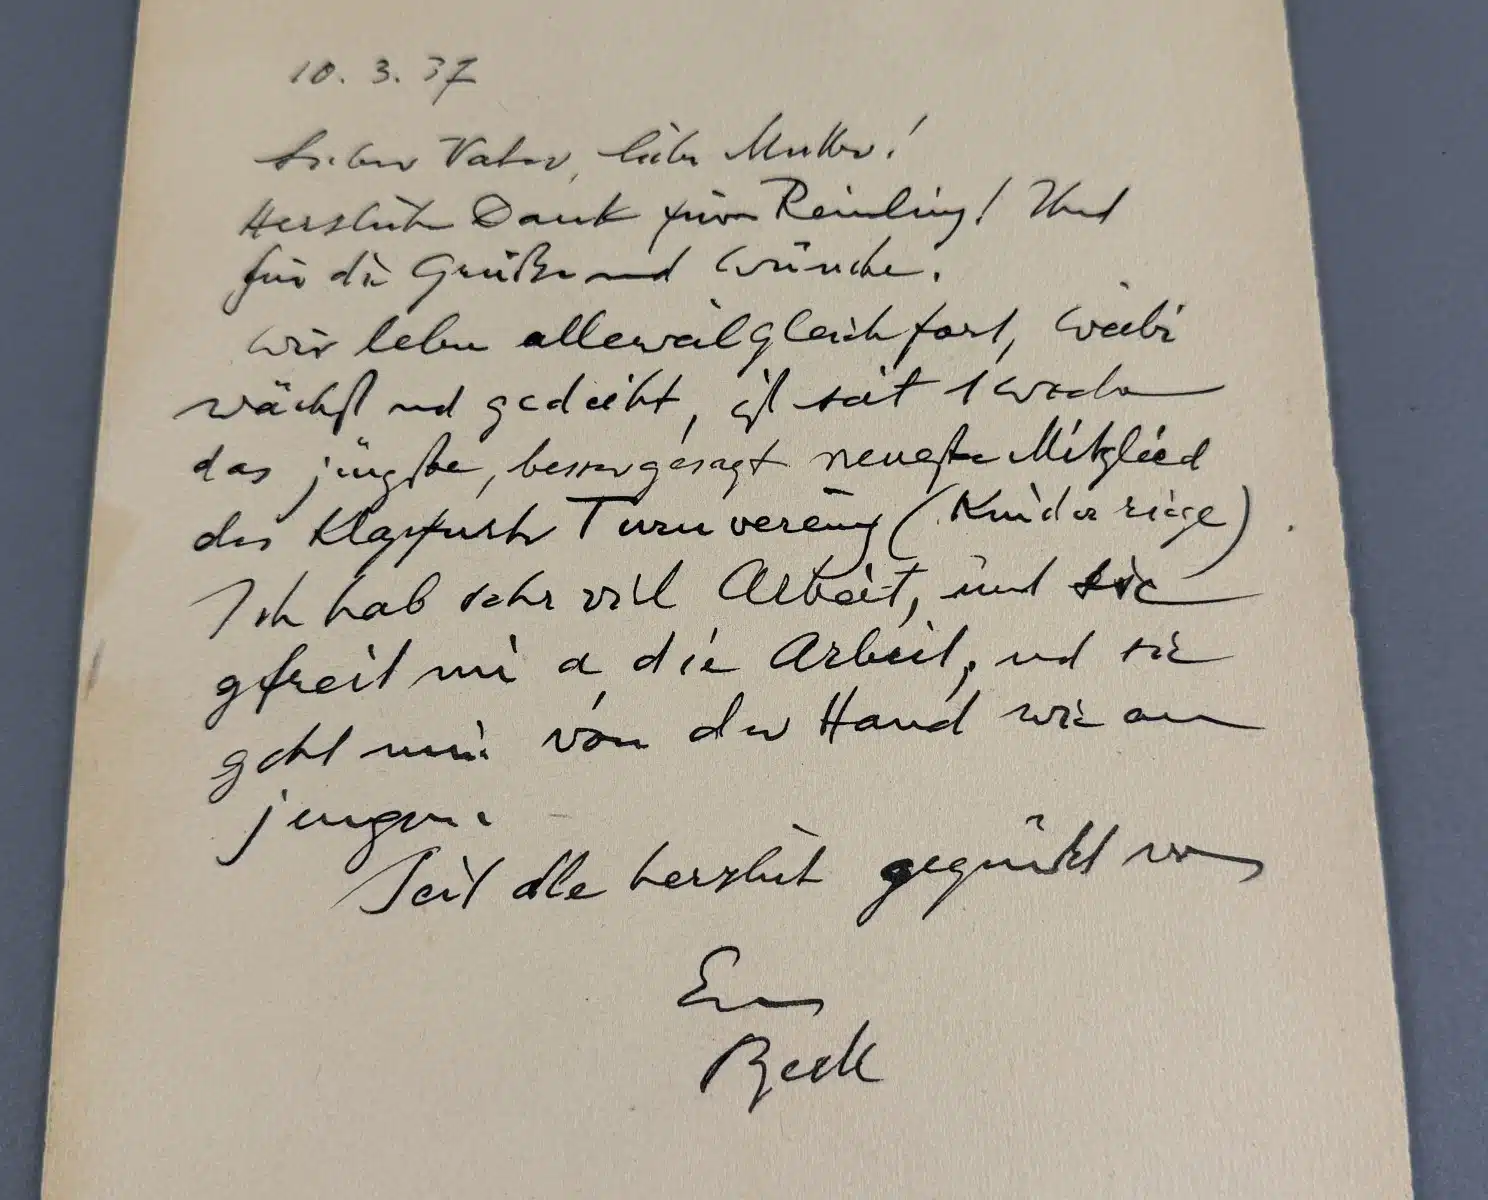 10. 3. 37
Lieber Vater, liebe Mutter!
Herzlichen Dank fürn Reindling! Und
für die Grüße und Wünsche.
Wir leben alleweil gleich fort,
wächst und gedeiht, ist seit 1 Woche
das jüngste, besser gesagt neueste Mitglied
des Klagenfurter Turnverein (Kinderriege).
Ich hab sehr viel Arbeit, und sie
gfreit mi a die Arbeit, und sie
geht mir von der Hand wie am
jungen.
Seid alle herzlich gegrüßt von